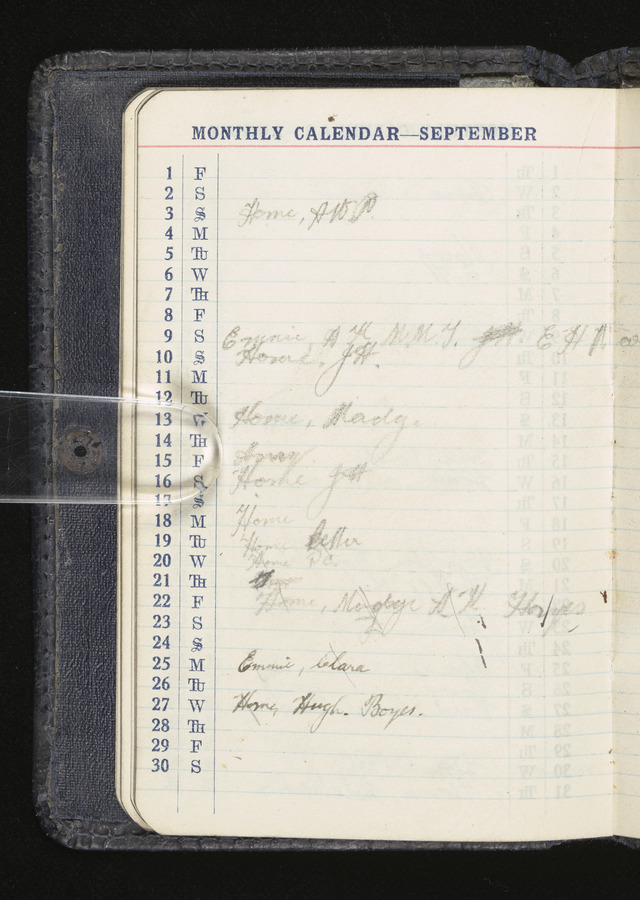 MONTHLY CALENDAR—SEPTEMBER
1 F
2 S
3 S Home, A W P
4 M
5 Tu
6 W
7 Th
8 F
9 S Emmie, A H M.M.T. J.H. E H A
10 S Home. J.H.
11 M
12 Tu
13 W Home, Madge
14 Th
15 F
16 S Home JH
17 S
18 M Home
19 Tu Home letter
20 W Home P.C.
21 Th
22 F Home, Madge A H
23 S
24 S
25 M Emmie, Clara
26 Tu
27 W Home, Hugh. Boyes.
28 Th
29 F
30 S